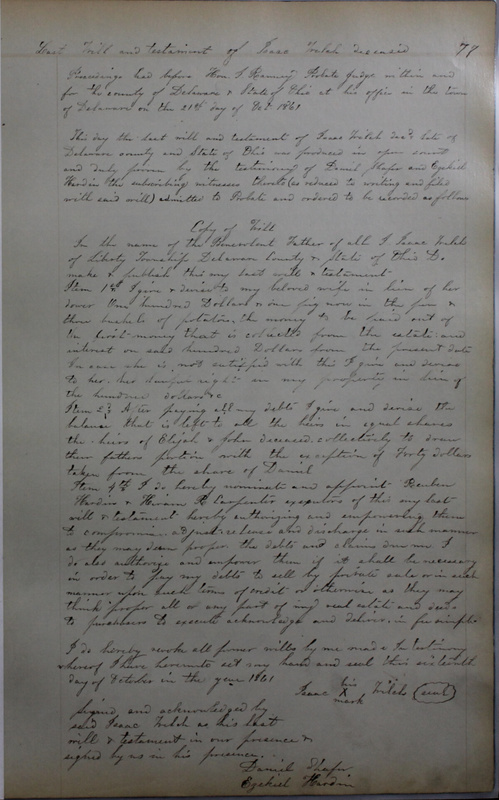 Last Will and testament of Isaac Welch deceased 79
Proceedings had before Hon. T Ranney Probate Judge within and
for the county of Delaware & State of Ohio at his office in the town
of Delaware on the 21st day of Oct. 1861
This day the last will and testament of Isaac Welch decd. late of
Delaware county and State of Ohio was produced in open court
and duly proven by the testimony of Daniel Shafer and Ezekiel
Hardin the subscribing witnesses thereto (as reduced to writing and filed
with said will) admitted to Probate and ordered to be recorded as follows
Copy of Will
In the name of the Benevolent Father of all I Isaac Welch
of Liberty Township Delaware County & State of Ohio Do
make & publish this my last will & testament
Item 1st I give & devise to my beloved wife in lieu of her
dower One hundred Dollars & one pig now in the pen &
three bushels of potatoes. the money to be paid out of
the first money that is collected from the estate and
interest on said hundred Dollars from the present date
In case she is not satisfied with this I give and devise
to her her right in my property in lieu of
the hundred dollars &c
Item 2d After paying all my debts I give and devise the
balance that is left to all the heirs in equal shares
the heirs of Elijah & John deceased. collectively to draw
their fathers portion with the exception of Forty Dollars
taken from the share of Daniel
Item 4th I do hereby nominate and appoint Reuben
Hardin & Hiram R Carpenter executors of this my last
will & testament hereby authorizing and empowering them
to compromise adjust release and discharge in such manner
as they may deem proper the debts and claims due me I
do also authorize and empower them if it shall be necessary
in order to pay my debts to sell by private sale or in such
manner upon such terms of credit or otherwise as they may
think proper all or any part of my real estate and deeds
to purchasers to execute acknowledge and deliver in fee simple
I do hereby revoke all former wills by me made In testimony
whereof I have hereunto set my hand and seal this sixteenth
day of October in the year 1861
Isaac his X mark Welch (seal)
Signed and acknowledged by
said Isaac Welch as his last
will & testament in our presence &
signed by us in his presence.
Daniel Shafer
Ezekiel Hardin